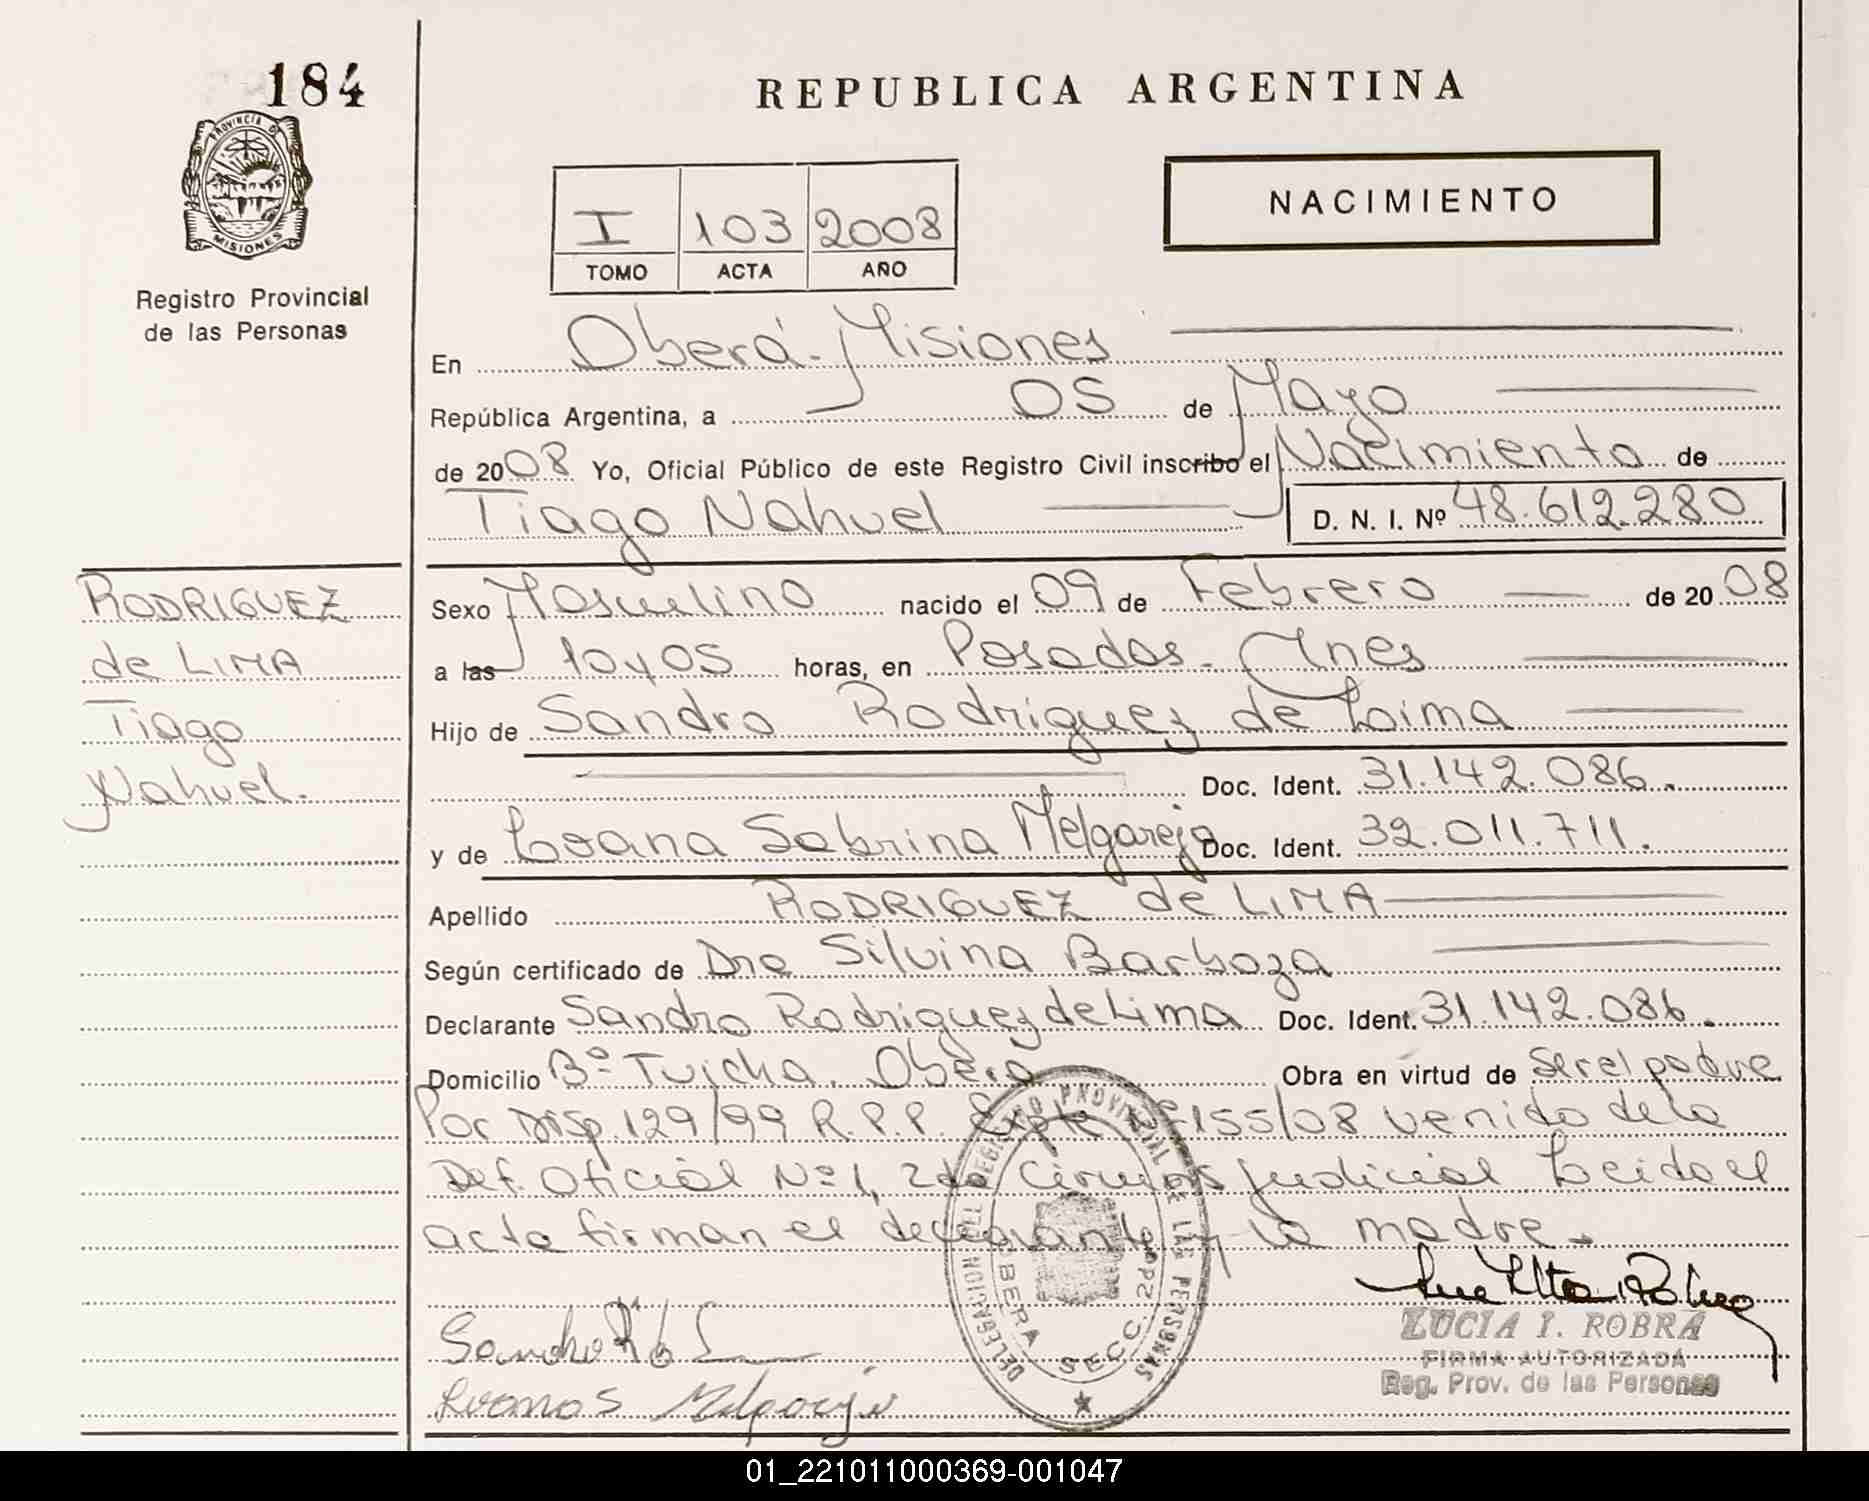 184
REPUBLICA ARGENTINA
PROVINCIA DE
MISIONES
Registro Provincial
de las Personas
I 103 2008
TOMO ACTA AÑO
NACIMIENTO
En Oberá - Misiones
República Argentina, a 05 de Mayo
de 2008 Yo, Oficial Público de este Registro Civil inscribo el Nacimiento de
Tiago Nahuel D. N. I. Nº 48.612.280
RODRIGUEZ
de LIMA
Tiago
Nahuel.
Sexo Masculino nacido el 09 de Febrero de 2008
a las 10 y 05 horas, en Posadas - Mnes
Hijo de Sandro Rodriguez de Lima
Doc. Ident. 31.142.086.
y de Loana Sabrina Melgarejo Doc. Ident. 32.011.711.
Apellido RODRIGUEZ de LIMA
Según certificado de Dra Silvina Barboza
Declarante Sandro Rodriguez de Lima Doc. Ident. 31.142.086.
Domicilio Bº Tuicha. Oberá Obra en virtud de ser el padre
Por Disp. 129/99 R.P.P. Expte Nº 155/08 venido de la
Def. Oficial Nº 1, 2da Circuns Judicial Leida el
acta firman el declarante y la madre.
DELEGACION DEL REGISTRO PROVINCIAL DE LAS PERSONAS
OBERA SECC. 2da
Sandro R d L
Melgarejo
LUCIA I. ROBRA
FIRMA AUTORIZADA
Reg. Prov. de las Personas
01_221011000369-001047